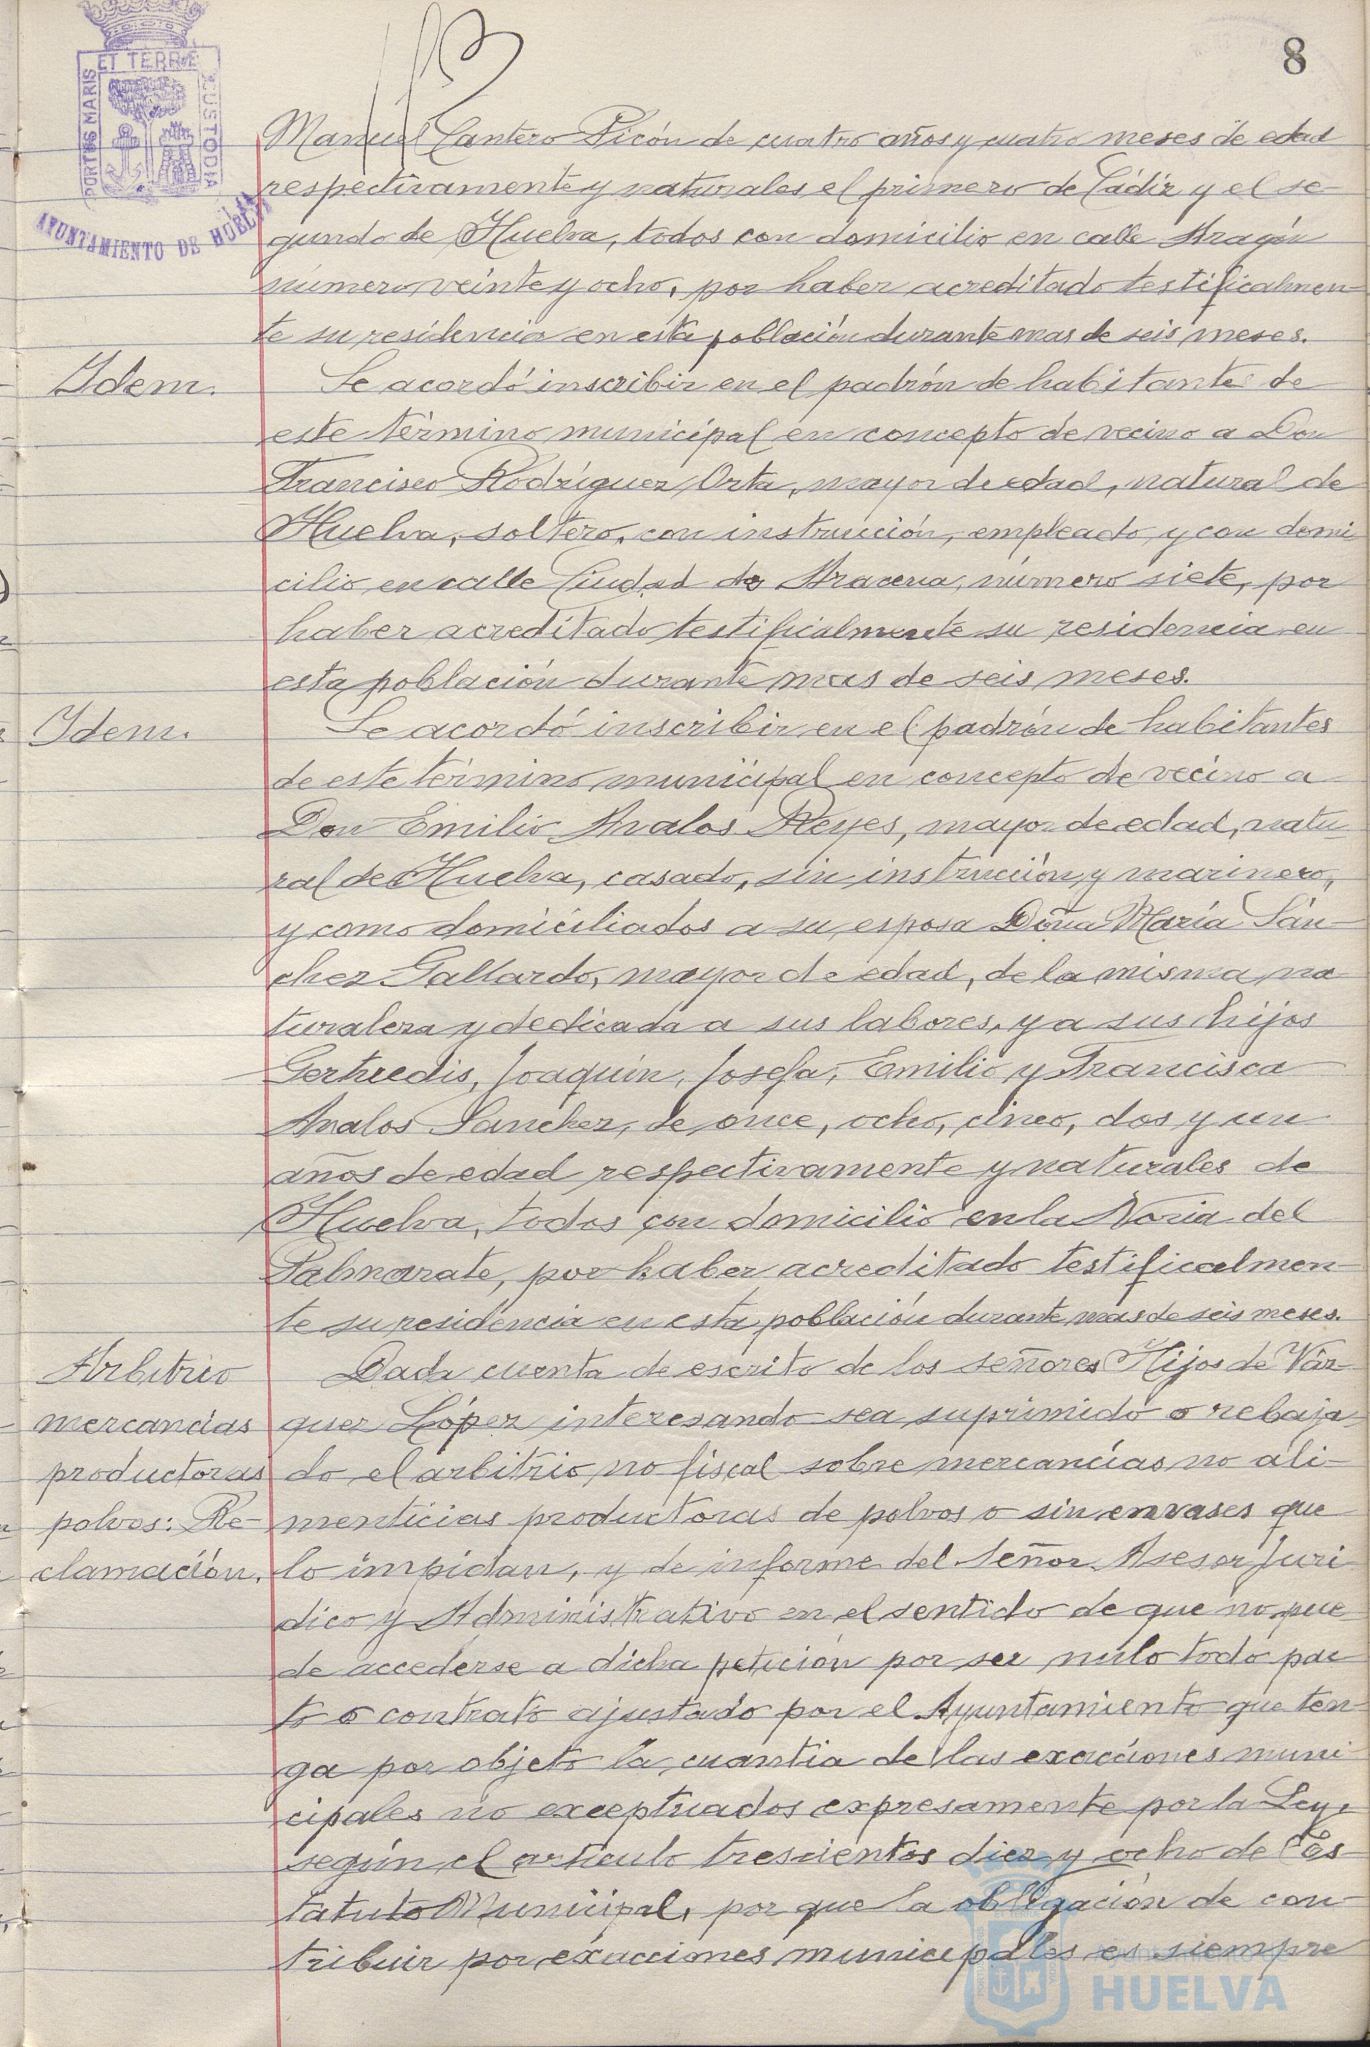 8
PORTUS MARIS ET TERRÆ CUSTODIA
AYUNTAMIENTO DE HUELVA
Manuel Cantero Picón de cuatro años y cuatro meses de edad
respectivamente y naturales el primero de Cádiz y el se-
gundo de Huelva, todos con domicilio en calle Aragón
número veinte y ocho, por haber acreditado testificalmen-
te su residencia en esta población durante mas de seis meses.
Idem.
Se acordó inscribir en el padrón de habitantes de
este término municipal en concepto de vecino a Don
Francisco Rodríguez Orta, mayor de edad, natural de
Huelva, soltero, con instrucción, empleado, y con domi
cilio en calle Ciudad de Aracena, número siete, por
haber acreditado testificalmente su residencia en
esta población durante mas de seis meses.
Idem.
Se acordó inscribir en el padrón de habitantes
de este término municipal en concepto de vecino a
Don Emilio Avalos Reyes, mayor de edad, natu-
ral de Huelva, casado, sin instrucción y marinero,
y como domiciliados a su esposa Doña María Sán-
chez Gallardo, mayor de edad, de la misma na
turaleza y dedicada a sus labores, y a sus hijos
Gertrudis, Joaquín, Josefa, Emilio y Francisca
Avalos Sanchez, de once, ocho, cinco, dos y un
años de edad respectivamente y naturales de
Huelva, todos con domicilio en la Noria del
Palmarate, por haber acreditado testificalmen-
te su residencia en esta población durante mas de seis meses.
Arbitrio
mercancías
productoras
polvos: Re-
clamación.
Dada cuenta de escrito de los señores Hijos de Váz-
quez López interesando sea suprimido o rebaja-
do el arbitrio no fiscal sobre mercancías no ali-
menticias productoras de polvos o sin envases que
lo impidan, y de informe del Señor Asesor Juri
dico y Administrativo en el sentido de que no pue
de accederse a dicha petición por ser nulo todo pac
to o contrato ajustado por el Ayuntamiento que ten-
ga por objeto la cuantia de las exacciones muni-
cipales no exceptuados expresamente por la Ley,
según el artículo trescientos diez y ocho de Es-
tatuto Municipal, por que la obligación de con-
tribuir por exacciones municipales es siempre
Ayuntamiento de
HUELVA